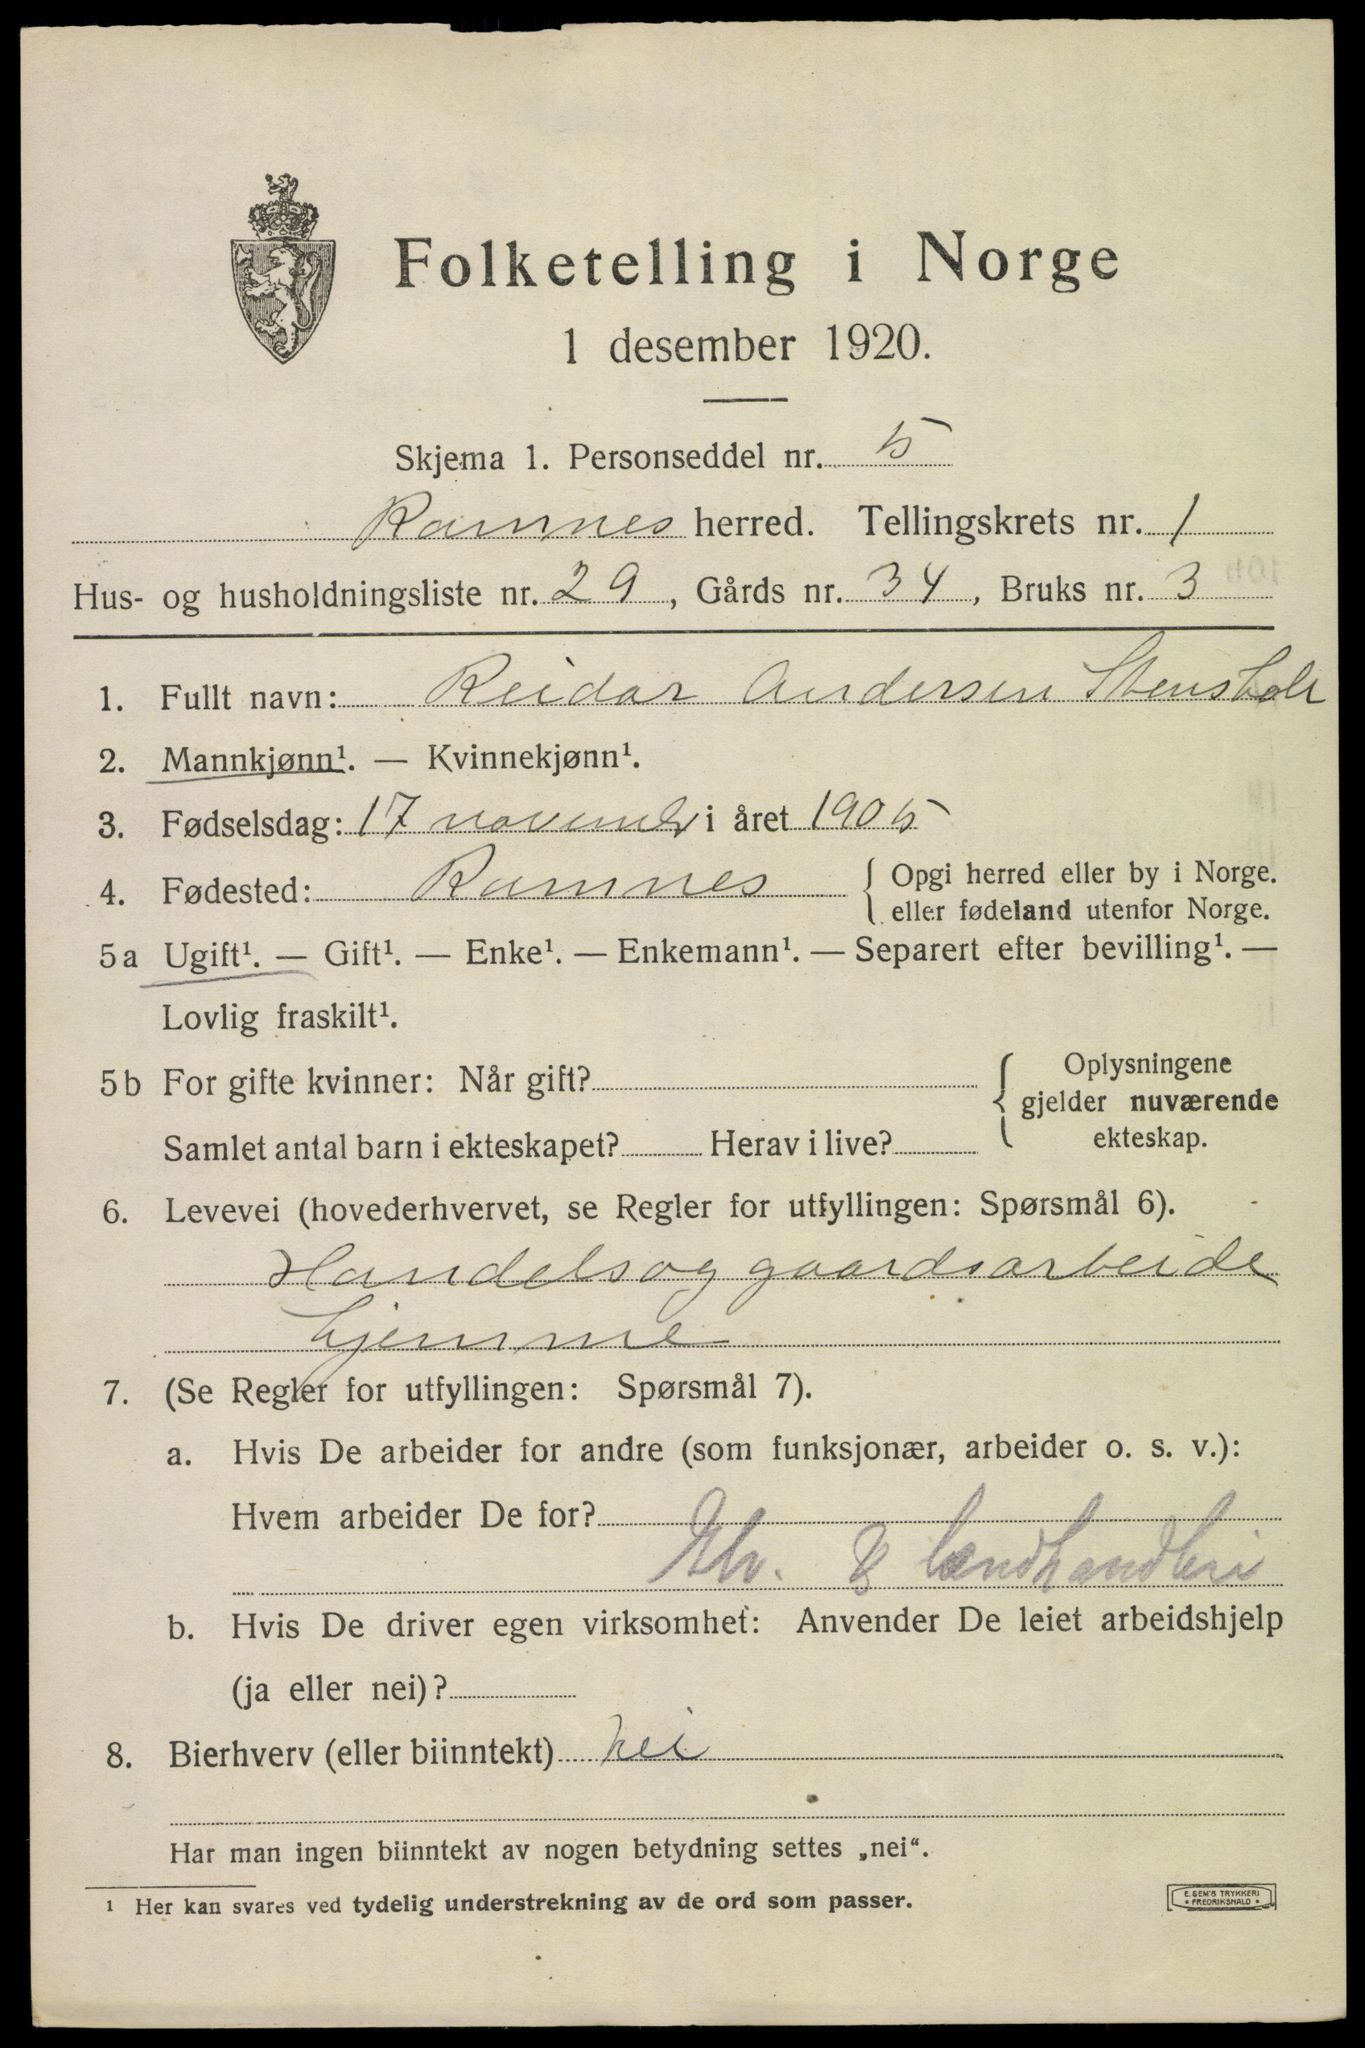 Folketelling i Norge
1 desember 1920.
Skjema 1. Personseddel nr. 5
Ramnes herred. Tellingskrets nr. 1
Hus- og husholdningsliste nr. 29, Gårds nr. 34, Bruks nr. 3
1. Fullt navn: Reidar Andersen Stensholt
2. Mannkjønn¹. — Kvinnekjønn¹.
3. Fødselsdag: 17 november i året 1905
4. Fødested: Ramnes { Opgi herred eller by i Norge.
eller fødeland utenfor Norge.
5a Ugift¹. — Gift¹. — Enke¹. — Enkemann¹. — Separert efter bevilling¹. —
Lovlig fraskilt¹.
5b For gifte kvinner: Når gift? { Oplysningene
gjelder nuværende
ekteskap.
Samlet antal barn i ekteskapet? Herav i live?
6. Levevei (hovederhvervet, se Regler for utfyllingen: Spørsmål 6).
Handels og gaardsarbeide
hjemme
7. (Se Regler for utfyllingen: Spørsmål 7).
a. Hvis De arbeider for andre (som funksjonær, arbeider o. s. v.):
Hvem arbeider De for?
& landhandleri
b. Hvis De driver egen virksomhet: Anvender De leiet arbeidshjelp
(ja eller nei)?
8. Bierhverv (eller biinntekt) nei
Har man ingen biinntekt av nogen betydning settes „nei“.
¹ Her kan svares ved tydelig understrekning av de ord som passer.
E. SEM'S TRYKKERI
• FREDRIKSHALD •